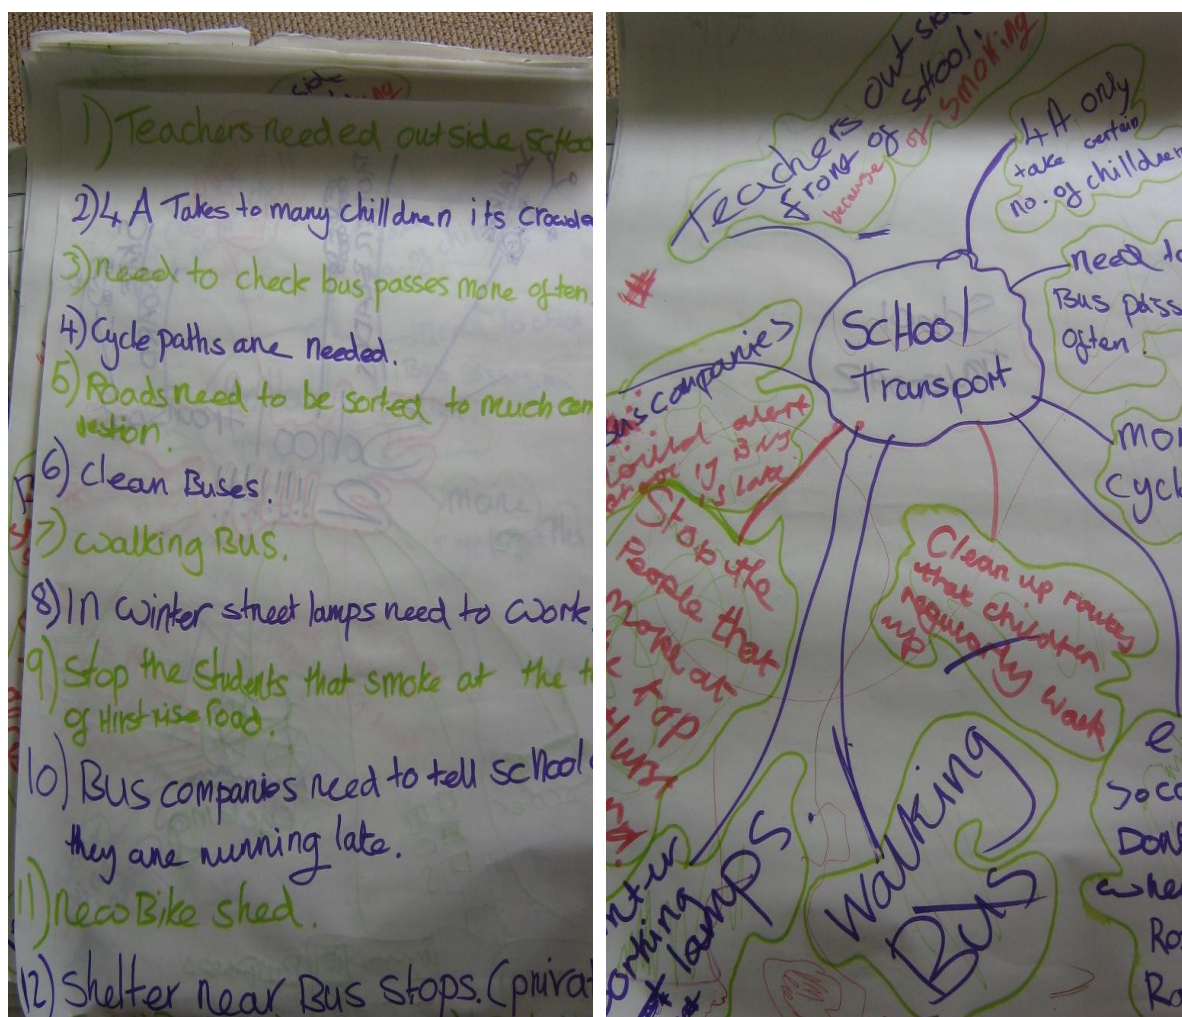 side
1) Teachers needed outside schoo
2) 4 A Takes to many chilldren its crowde
3) need to check bus passes more often.
4) Cycle paths are needed.
5) Roads need to be sorted to much con
estion.
6) Clean Buses.
7) walking Bus.
8) In winter street lamps need to work
9) Stop the students that smoke at the t
of Hirst rise road.
10) Bus companies need to tell school
they are running late.
11) new Bike shed.
12) Shelter near Bus stops. (priva
Teachers out sid
front of school.
because of smoking
4 A only
take certain
no. of chilldren
need to
Bus pass
often
School
Transport
mor
Cycl
Bus companies
could alert
if Bus
is late
Stop the
People that
smoke at
top
Hurst
Clean up routes
that children
regularly walk
up
Walking
Bus
nter
orking
lamps.
e
Socc
Don
whe
Ro
Ro